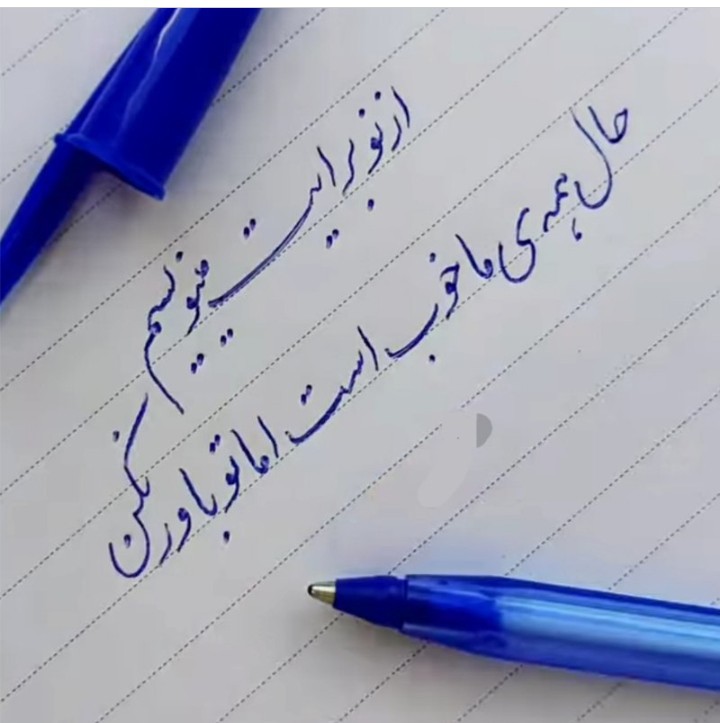 از نو برایت مینویسم
حال همه ی ما خوب است اما تو باور نکن